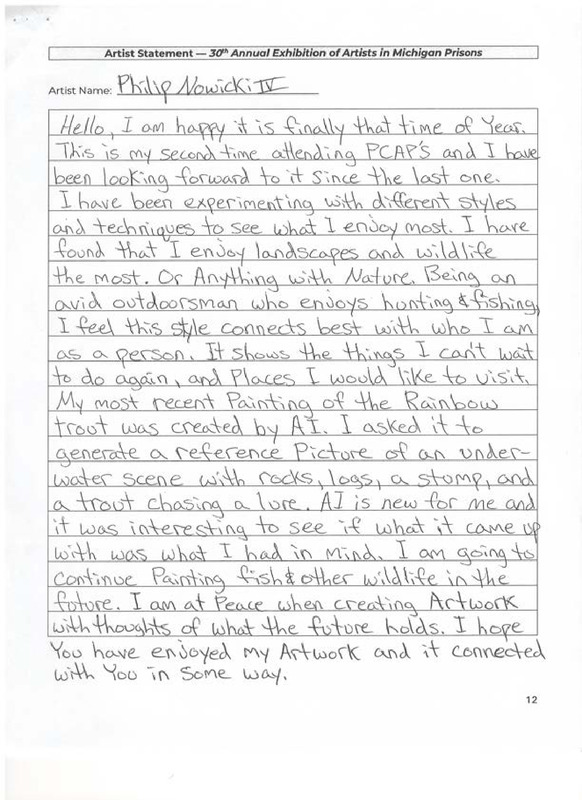 Artist Statement — 30th Annual Exhibition of Artists in Michigan Prisons
Artist Name: Philip Nowicki IV
Hello, I am happy it is finally that time of Year.
This is my second time attending PCAP'S and I have
been looking forward to it since the last one.
I have been experimenting with different styles
and techniques to see what I enjoy most. I have
found that I enjoy landscapes and wildlife
the most. Or Anything with Nature. Being an
avid outdoorsman who enjoys hunting & fishing,
I feel this style connects best with who I am
as a person. It shows the things I can't wait
to do again, and Places I would like to visit.
My most recent Painting of the Rainbow
trout was created by AI. I asked it to
generate a reference Picture of an under-
water scene with rocks, logs, a stump, and
a trout chasing a lure. AI is new for me and
it was interesting to see if what it came up
with was what I had in mind. I am going to
continue Painting fish & other wildlife in the
future. I am at Peace when creating Artwork
with thoughts of what the future holds. I hope
You have enjoyed my Artwork and it connected
with You in Some way.
12